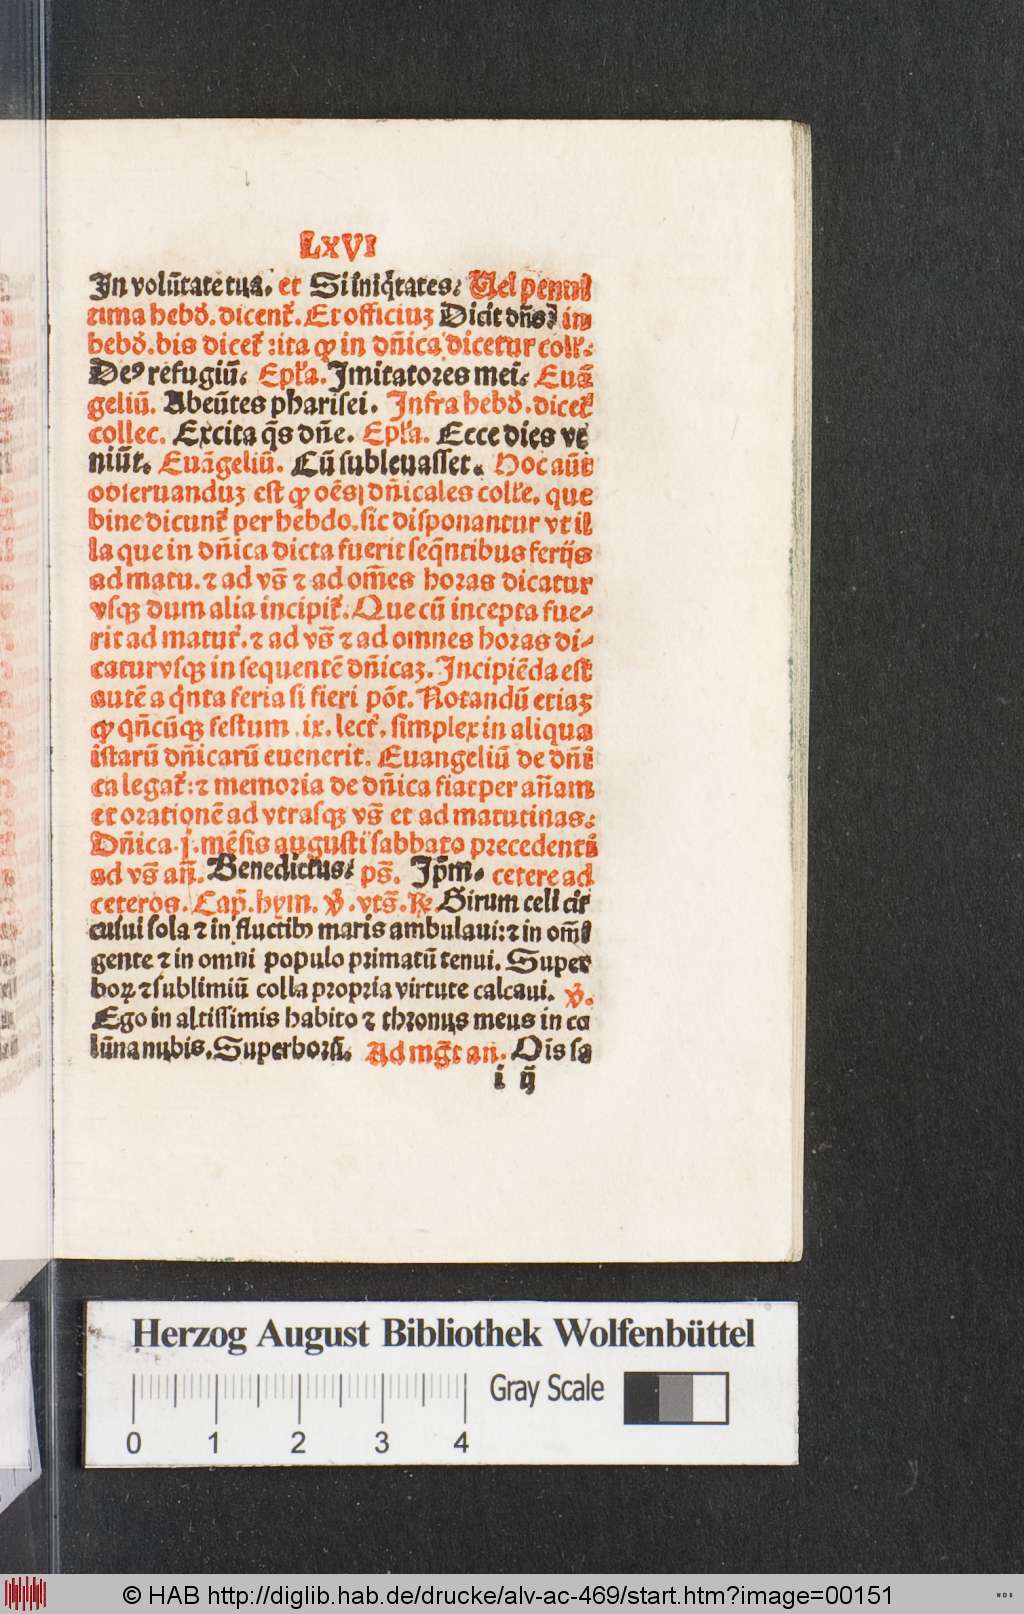 LXVI
In volūtate tua. et Si iniq̄tates: Uel penul
tima hebd̉. dicent᷑. Et officiuꝫ Dicit dn̄s: in
hebd̉. bis dicet᷑: ita ꝙ in dn̄ica dicetur coll̉:
Deꝰ refugiū. Epl̉a. Imitatores mei: Euā
geliū. Abeūtes pharisei. Infra hebd̉. dicet᷑
collec. Excita q̄s dn̄e. Epl̉a. Ecce dies ve
niūt. Euāgeliū. Cū subleuasset. Hoc aūt
obseruanduꝫ est ꝙ oēs dn̄icales coll̉e. que
hine dicunt᷑ per hebdo. sic disponantur vt il
la que in dn̄ica dicta fuerit seq̄ntibus ferijs
ad matu. ⁊ ad vs̄ ⁊ ad om̄es horas dicatur
vsqꝫ dum alia incipit᷑. Que cū incepta fue⸗
rit ad matut᷑. ⁊ ad vs̄ ⁊ ad omnes horas di⸗
catur vsqꝫ in sequentē dn̄icaꝫ. Incipiēda est
autē a q̇nta feria si fieri pōt. Notandū etiaꝫ
ꝙ qn̄cūqꝫ festum .ix. lect᷑. simplex in aliqua
istarū dn̄icarū euenerit. Euangeliū de dn̄i
ca legat᷑: ⁊ memoria de dn̄ica fiat per an̄am
et orationē ad vtrasqꝫ vs̄ et ad matutinas:
Dn̄ica .j. mēsis augusti sabbato precedenti
ad vs̄ an̄. Benedictus: ps̄. Ip̄m. cetere ad
ceteros. Cap̄. hym. ℣ .vts̄. ℟ Girum celi cir
cuiui sola ⁊ in fluctibꝰ maris ambulaui: ⁊ in om̄i
gente ⁊ in omni populo primatū tenui. Super
boꝝ ⁊ sublimiū colla propria virtute calcaui. ℣.
Ego in altissimis habito ⁊ thronus meus in co
lūna nubis. Superborū. Ad mḡt an. Ois sa
i ij
Herzog August Bibliothek Wolfenbüttel
Gray Scale
0 1 2 3 4
© HAB http://diglib.hab.de/drucke/alv-ac-469/start.htm?image=00151